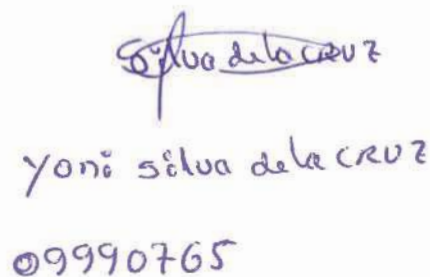 Silva de la CRUZ
Yoni Silva de la CRUZ
09990765